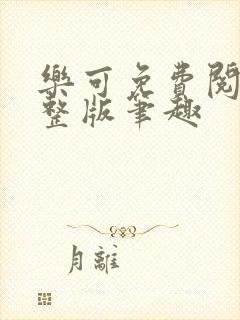 樂可免費閱
整版筆趣
月離